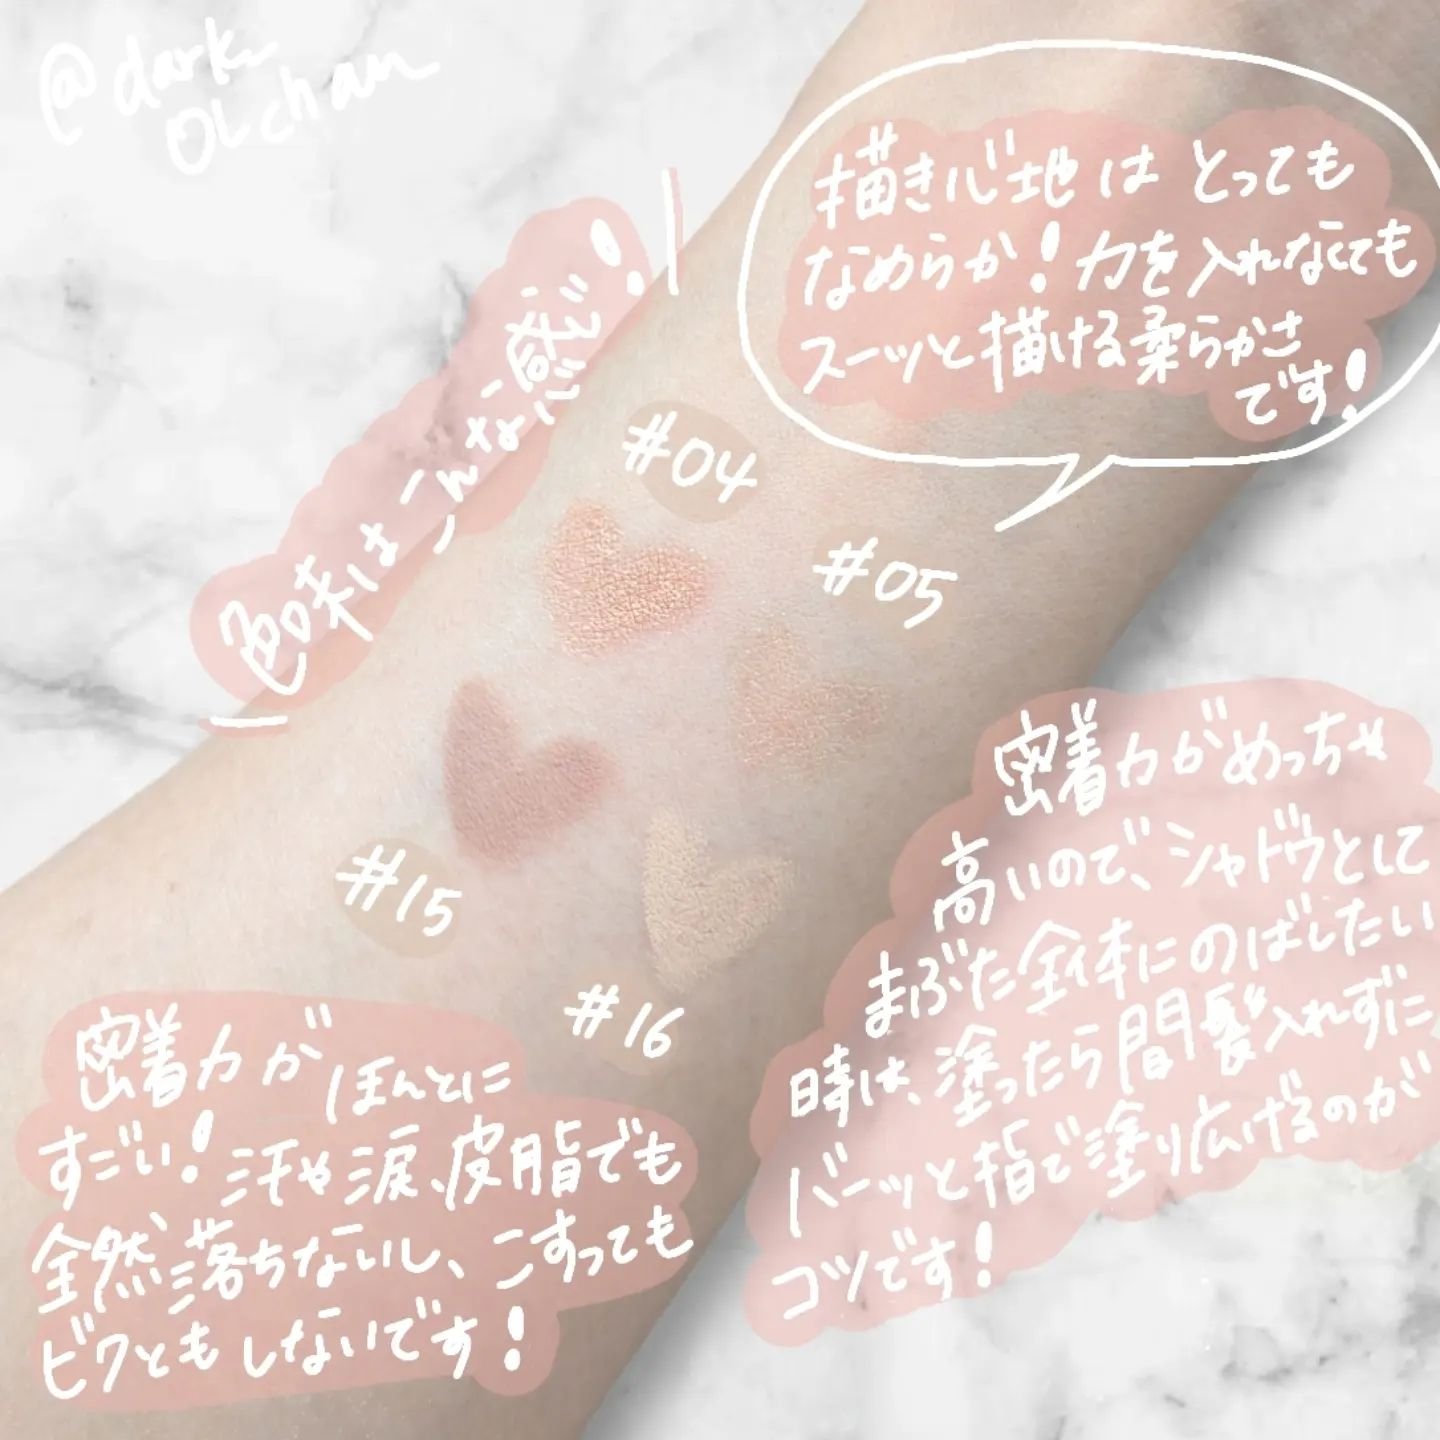 @dark
OLchan
描き心地はとっても
なめらか!力を入れなくても
スーッと描ける柔らかさ
です!
色味はこんな感じ!
#04
#05
#15
#16
密着力がめっちゃ
高いので、シャドウとして
まぶた全体にのばしたい
時は、塗ったら間髪入れずに
バーッと指で塗り広げるのが
コツです!
密着力がほんとに
すごい!汗や涙、皮脂でも
全然落ちないし、こすっても
ビクともしないです!